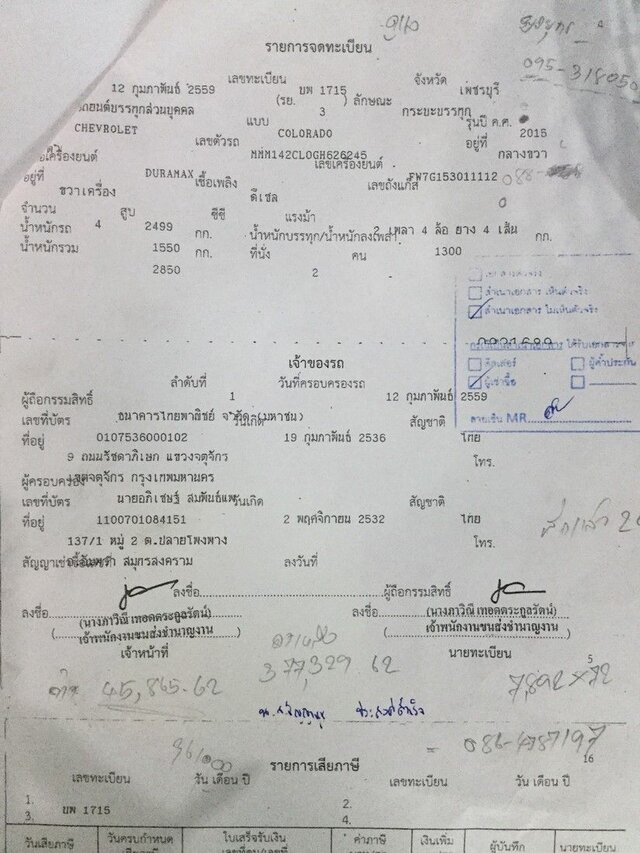 4
รายการจดทะเบียน
095-318050
12 กุมภาพันธ์ 2559 เลขทะเบียน บพ 1715 จังหวัด เพชรบุรี
รถยนต์บรรทุกส่วนบุคคล (รย. 3 ) ลักษณะ กระบะบรรทุก
CHEVROLET แบบ COLORADO รุ่นปี ค.ศ. 2015
เลขตัวรถ MMM142CL0GH626245 อยู่ที่ กลางขวา
เครื่องยนต์ DURAMAX เลขเครื่องยนต์ FW7G153011112
อยู่ที่ ขวาเครื่อง เชื้อเพลิง ดีเซล เลขถังแก๊ส
จำนวน 4 สูบ 2499 ซีซี แรงม้า 2 เพลา 4 ล้อ ยาง 4 เส้น
น้ำหนักรถ 1550 กก. น้ำหนักบรรทุก/น้ำหนักลงเพลา 1300 กก.
น้ำหนักรวม 2850 กก. ที่นั่ง 2 คน
สำเนาเอกสาร เห็นตัวจริง
สำเนาเอกสาร ไม่เห็นตัวจริง
ผู้ค้ำประกัน
ผู้เช่าซื้อ
ลายเซ็น MR.
เจ้าของรถ
ลำดับที่ 1 วันที่ครอบครองรถ 12 กุมภาพันธ์ 2559
ผู้ถือกรรมสิทธิ์ ธนาคารไทยพาณิชย์ จำกัด (มหาชน)
เลขที่บัตร 0107536000102 วันเกิด 19 กุมภาพันธ์ 2536 สัญชาติ ไทย
ที่อยู่ 9 ถนนรัชดาภิเษก แขวงจตุจักร
เขตจตุจักร กรุงเทพมหานคร โทร.
ผู้ครอบครอง นายอภิเชษฐ์ สมพันธ์แพ
เลขที่บัตร 1100701084151 วันเกิด 2 พฤศจิกายน 2532 สัญชาติ ไทย
ที่อยู่ 137/1 หมู่ 2 ต.ปลายโพงพาง
อ.อัมพวา สมุทรสงคราม โทร.
สัญญาเช่าซื้อเลขที่ ลงวันที่
ลงชื่อ ผู้ถือกรรมสิทธิ์
ลงชื่อ ลงชื่อ
(นางภาวิณี เทอดตระกูลรัตน์) (นางภาวิณี เทอดตระกูลรัตน์)
เจ้าพนักงานขนส่งชำนาญงาน เจ้าพนักงานขนส่งชำนาญงาน
เจ้าหน้าที่ นายทะเบียน
377,329.62
45,865.62
7,892 x 72
5
086-4787197
16
รายการเสียภาษี
เลขทะเบียน วัน เดือน ปี เลขทะเบียน วัน เดือน ปี
1. 2.
3. บพ 1715 4.
วันเสียภาษี วันครบกำหนด ใบเสร็จรับเงิน ค่าภาษี เงินเพิ่ม ผู้บันทึก นายทะเบียน